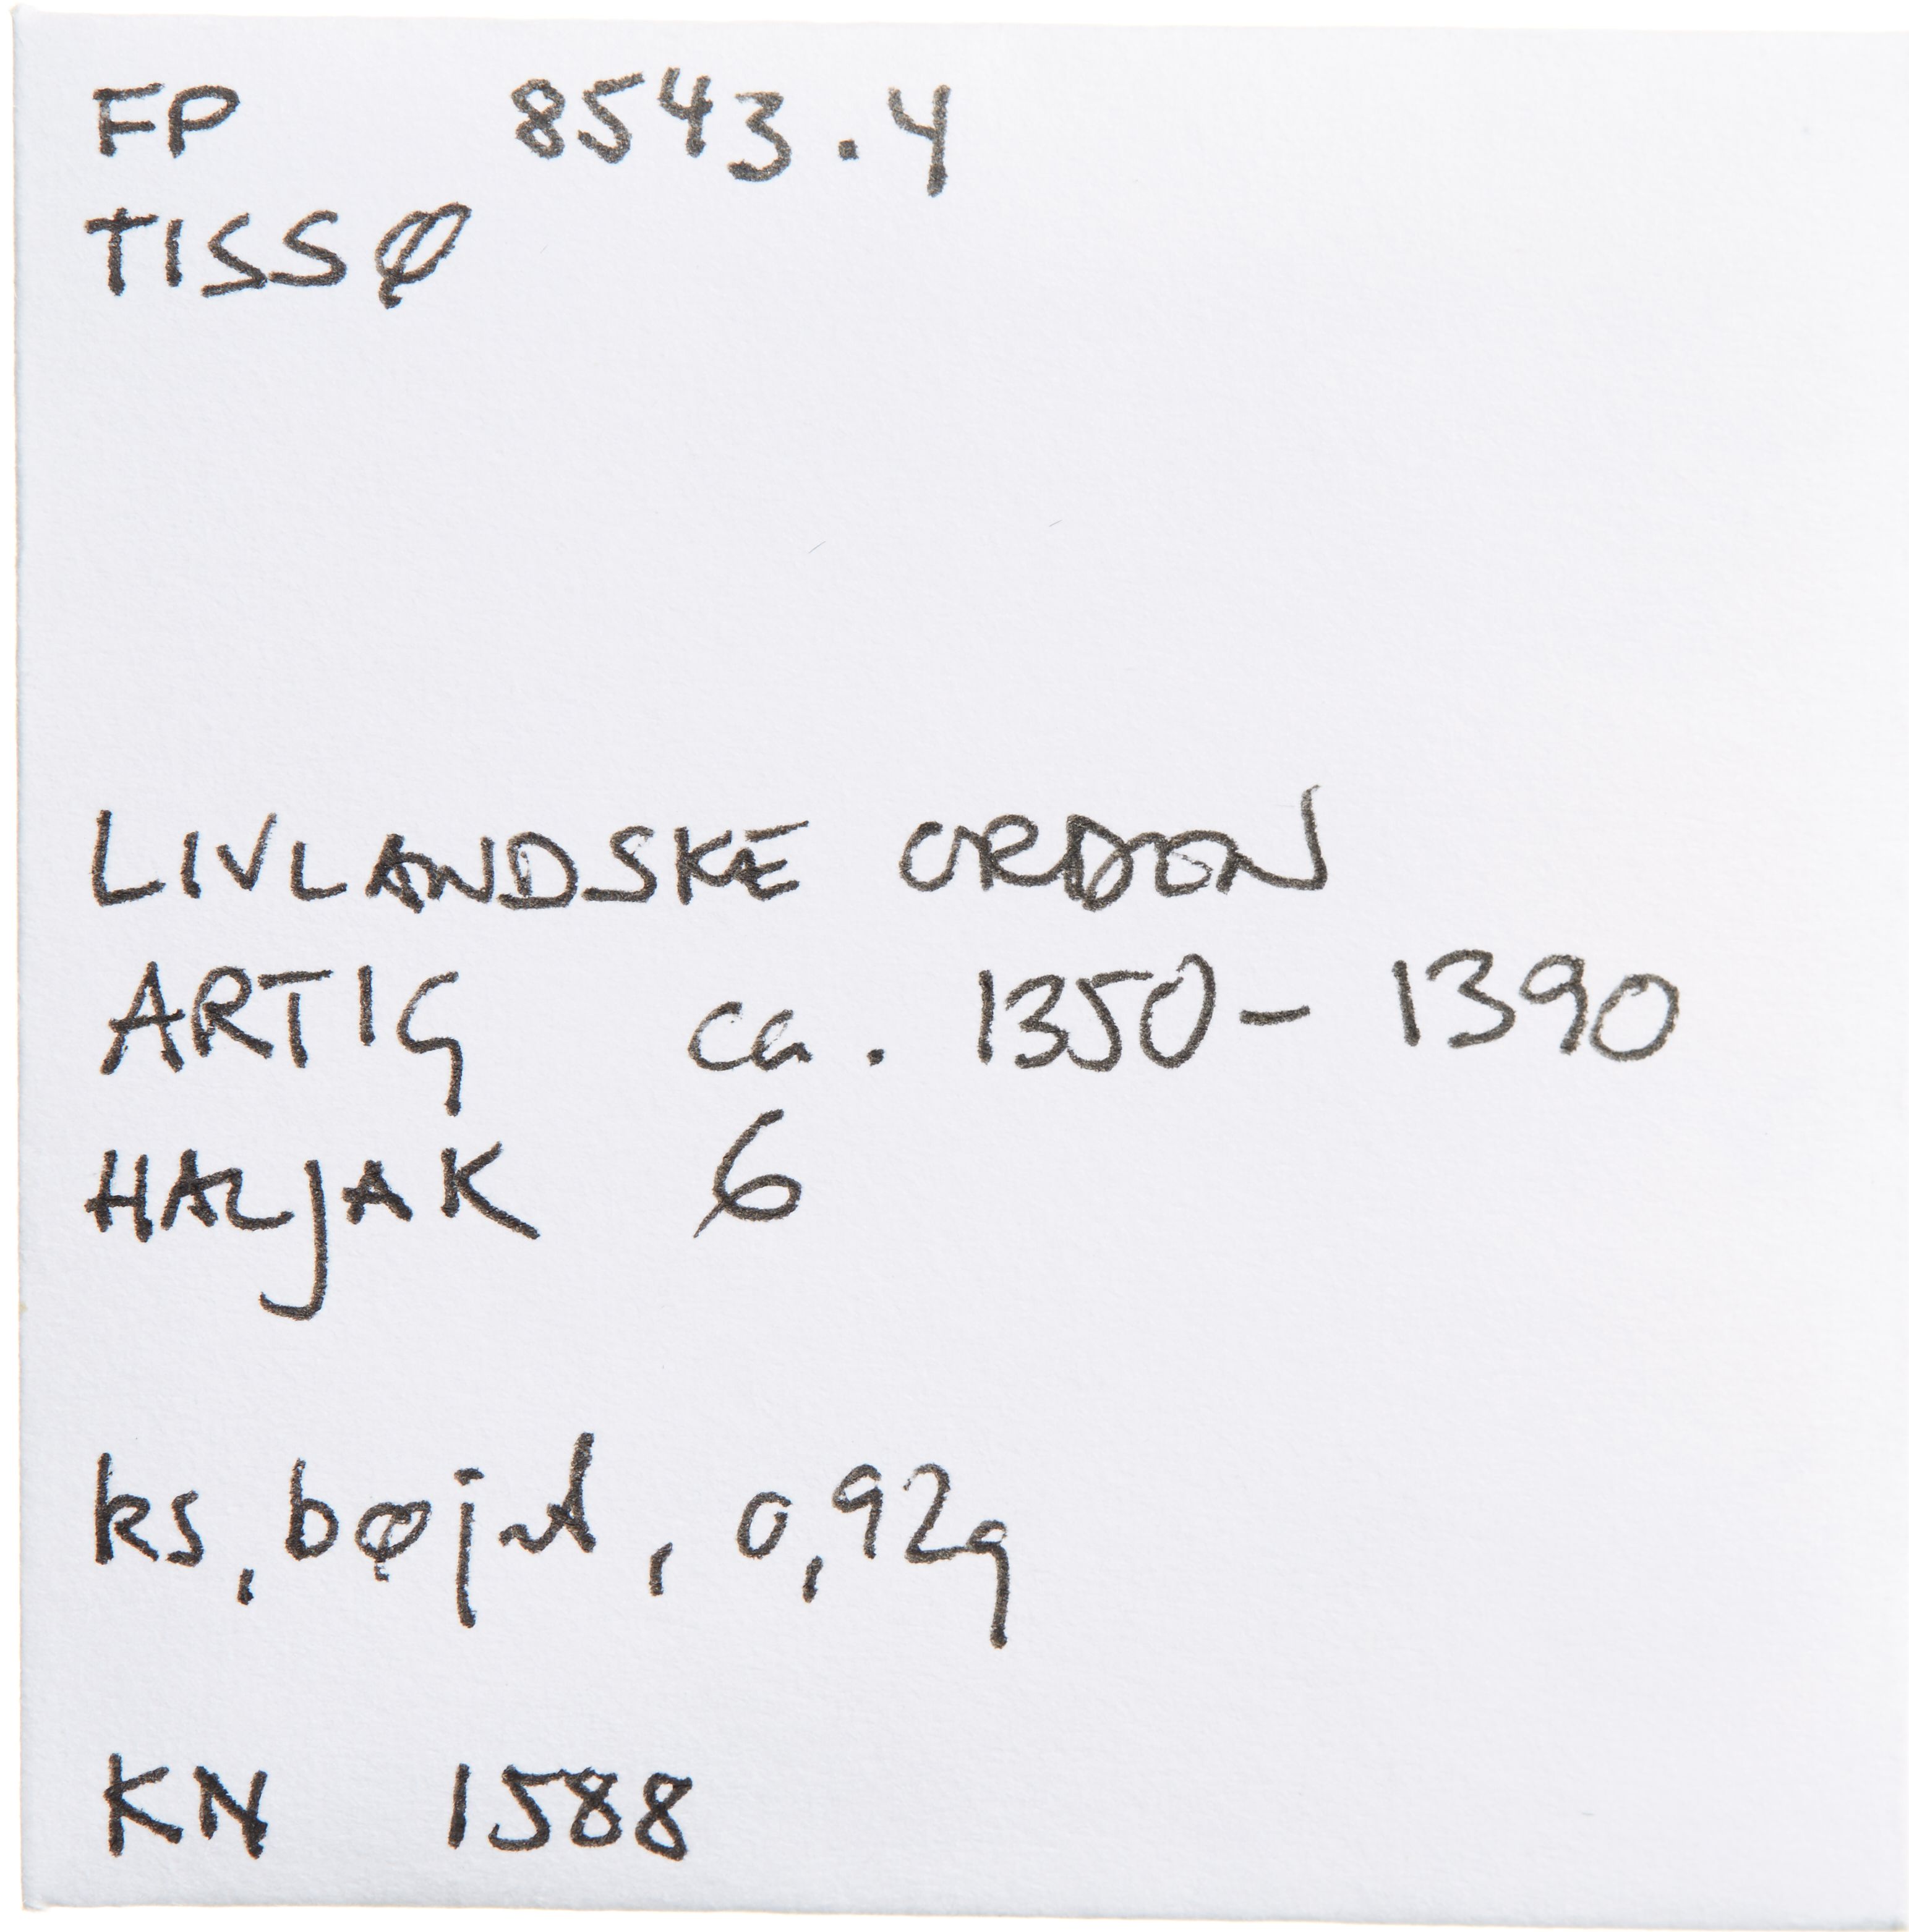 FP 8543.4
TISSØ
LIVLANDSKE ORDEN
ARTIG ca. 1350-1390
HALJAK 6
ks, bøjet, 0,92g
KN 1588